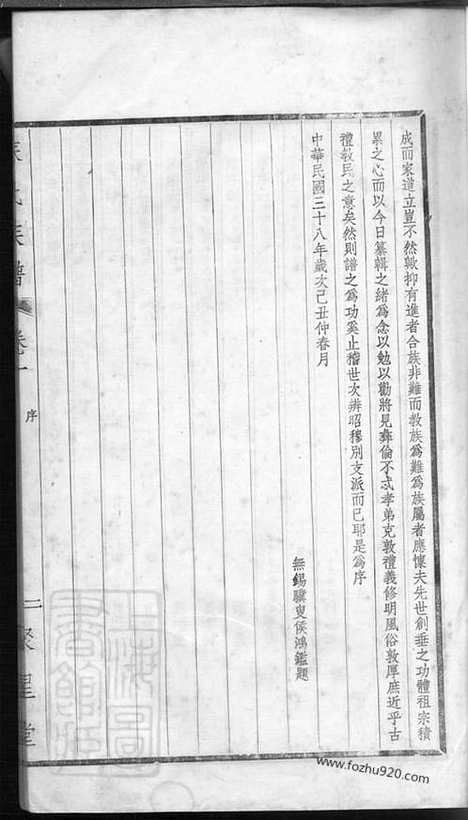 成而家道立豈不然歟抑有進者合族非難而教族爲難爲族屬者應懷夫先世創垂之功體祖宗積
累之心而以今日纂輯之緒爲念以勉以勸將見彝倫不忒孝弟克敦禮義修明風俗敦厚庶近乎古
禮教民之意矣然則譜之爲功奚止稽世次辨昭穆別支派而已耶是爲序
中華民國三十八年歲次己丑仲春月
無錫驥叟侯鴻鑑題
氏族譜
卷一
序
二
聚星堂
www.fozhu920.com